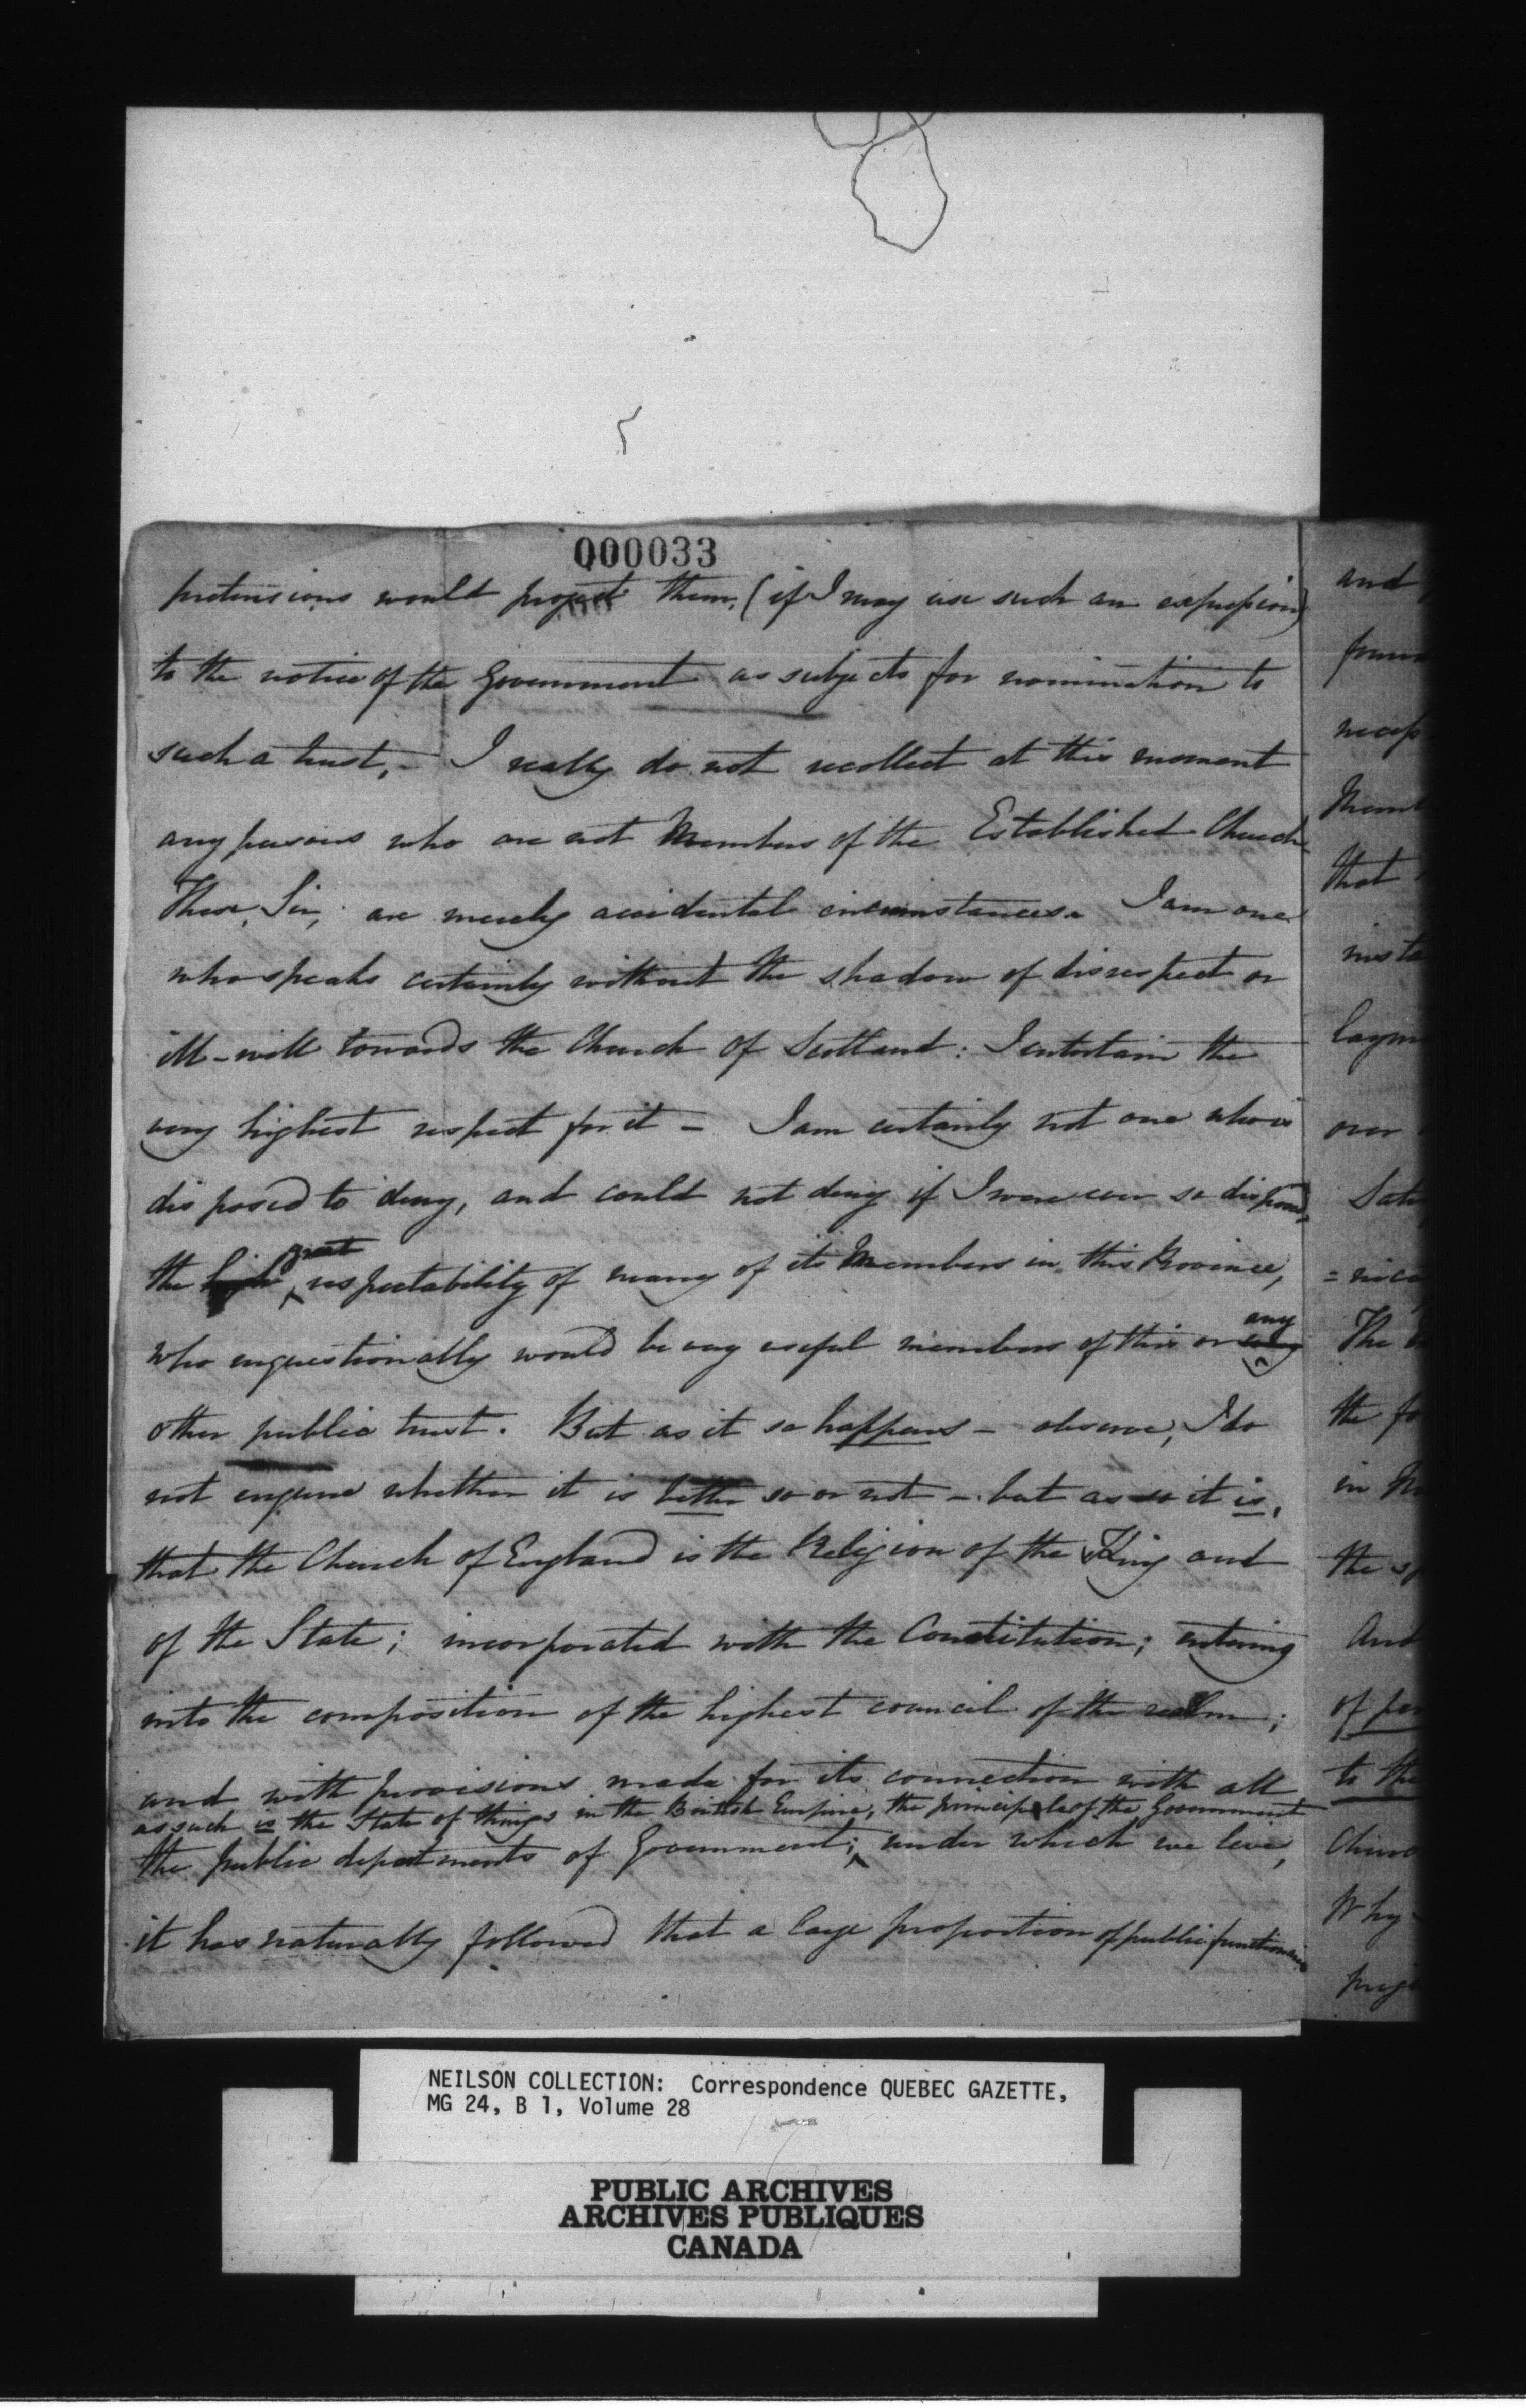 000033
pretensions would project them, (if I may use such an expression)
to the notice of the Government as subjects for nomination to
such a trust, - I really do not recollect at this moment
any persons who are not Members of the Established Church
These, Sir, are merely accidental circumstances. I am one
who speaks certainly without the shadow of disrespect or
ill-will towards the Church of Scotland: I entertain the
very highest respect for it - I am certainly not one who is
disposed to deny, and could not deny if I were ever so disposed,
great
the high respectability of many of its Members in this Province,
any
who unquestionably would be very useful members of this or
other public trust. But as it so happens - observe, I do
not enquire whether it is better so or not - but as so it is,
that the Church of England is the Religion of the King and
of the State; incorporated with the Constitution; entering
into the composition of the highest council of the realm;
and with provisions made for its connection with all
as such is the State of things in the British Empire, the principle of the Government
the public departments of Government; under which we live,
it has naturally followed that a large proportion of public functionaries
and
that
over
The
the
in
the
And
of
to the
Why
NEILSON COLLECTION: Correspondence QUEBEC GAZETTE,
MG 24, B 1, Volume 28
PUBLIC ARCHIVES
ARCHIVES PUBLIQUES
CANADA